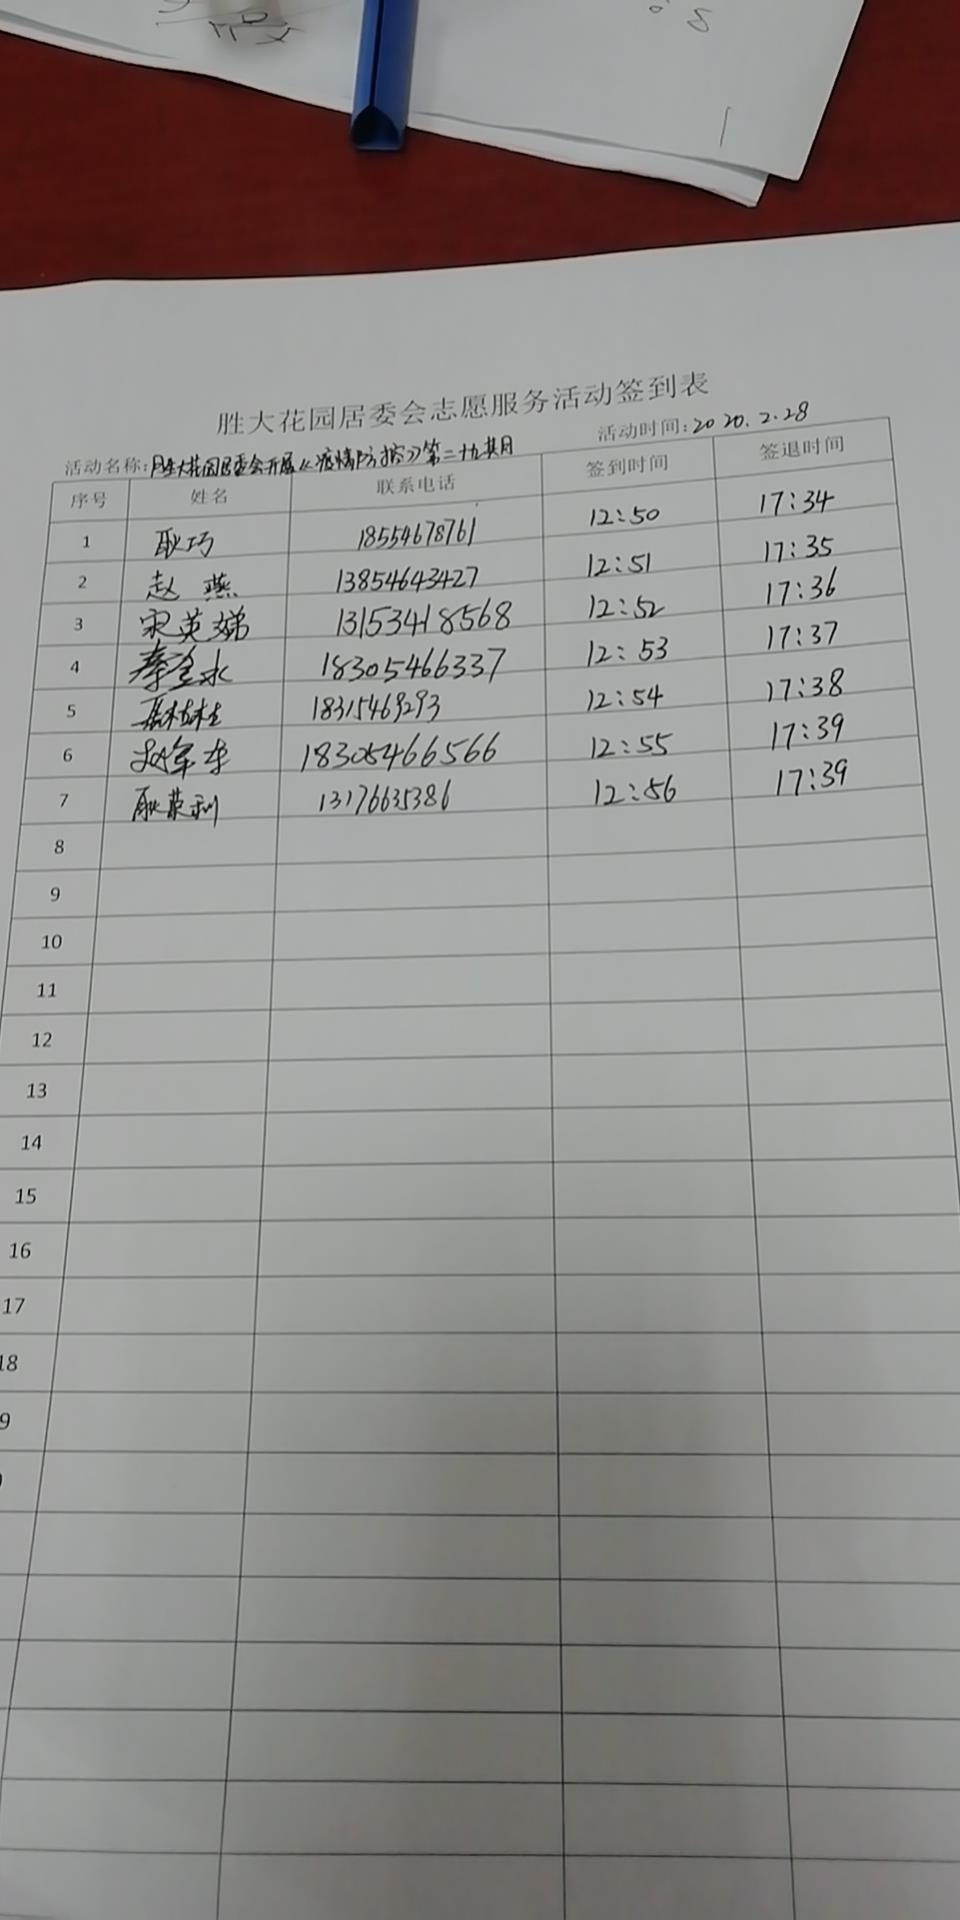 胜大花园居委会志愿服务活动签到表
活动名称:胜大花园居委会开展《疫情防控》第二十九期 活动时间:2020.2.28
序号 姓名 联系电话 签到时间 签退时间
1 耿巧 18554678761 12:50 17:34
2 赵燕 13854643427 12:51 17:35
3 宋英娣 13153418568 12:52 17:36
4 秦金水 18305466337 12:53 17:37
5 18315469293 12:54 17:38
6 18305466566 12:55 17:39
7 耿荣利 13176635386 12:56 17:39
8
9
10
11
12
13
14
15
16
17
18
9